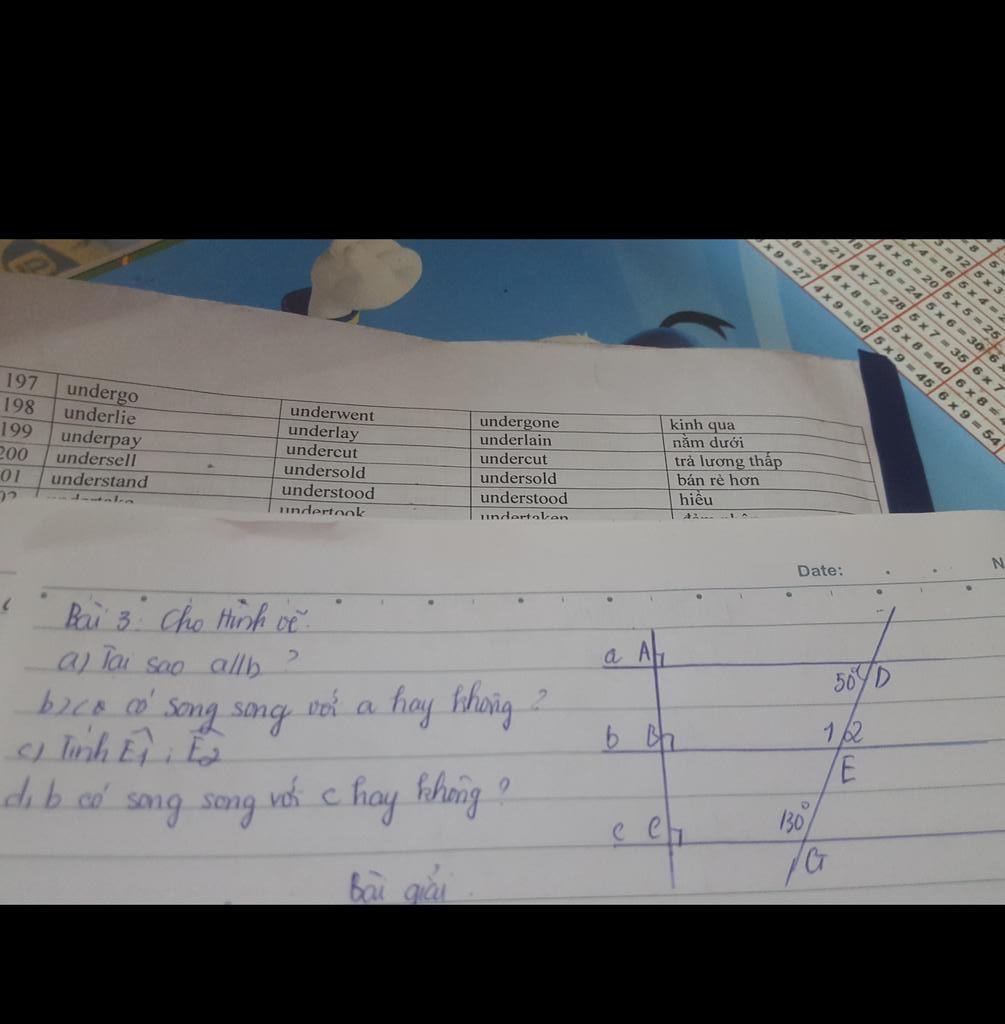 8 = 24 4 × 6 = 24 5 × 5 = 25
× 9 = 27 4 × 7 = 28 5 × 6 = 30
4 × 8 = 32 5 × 7 = 35 6 × 7
4 × 9 = 36 5 × 8 = 40 6 × 8 =
5 × 9 = 45 6 × 9 = 54
197 undergo underwent undergone kinh qua
198 underlie underlay underlain nằm dưới
199 underpay undercut undercut trả lương thấp
200 undersell undersold undersold bán rẻ hơn
01 understand understood understood hiểu
undertook undertaken
Date:
N
Bài 3: Cho Hình vẽ.
a) Tại sao a//b ?
có song song với a hay không ?
c) Tính Ê1 ; Ê2
d, b có song song với c hay không ?
Bài giải.
a A 50° D
b B 1 2
E
c C 130°
G